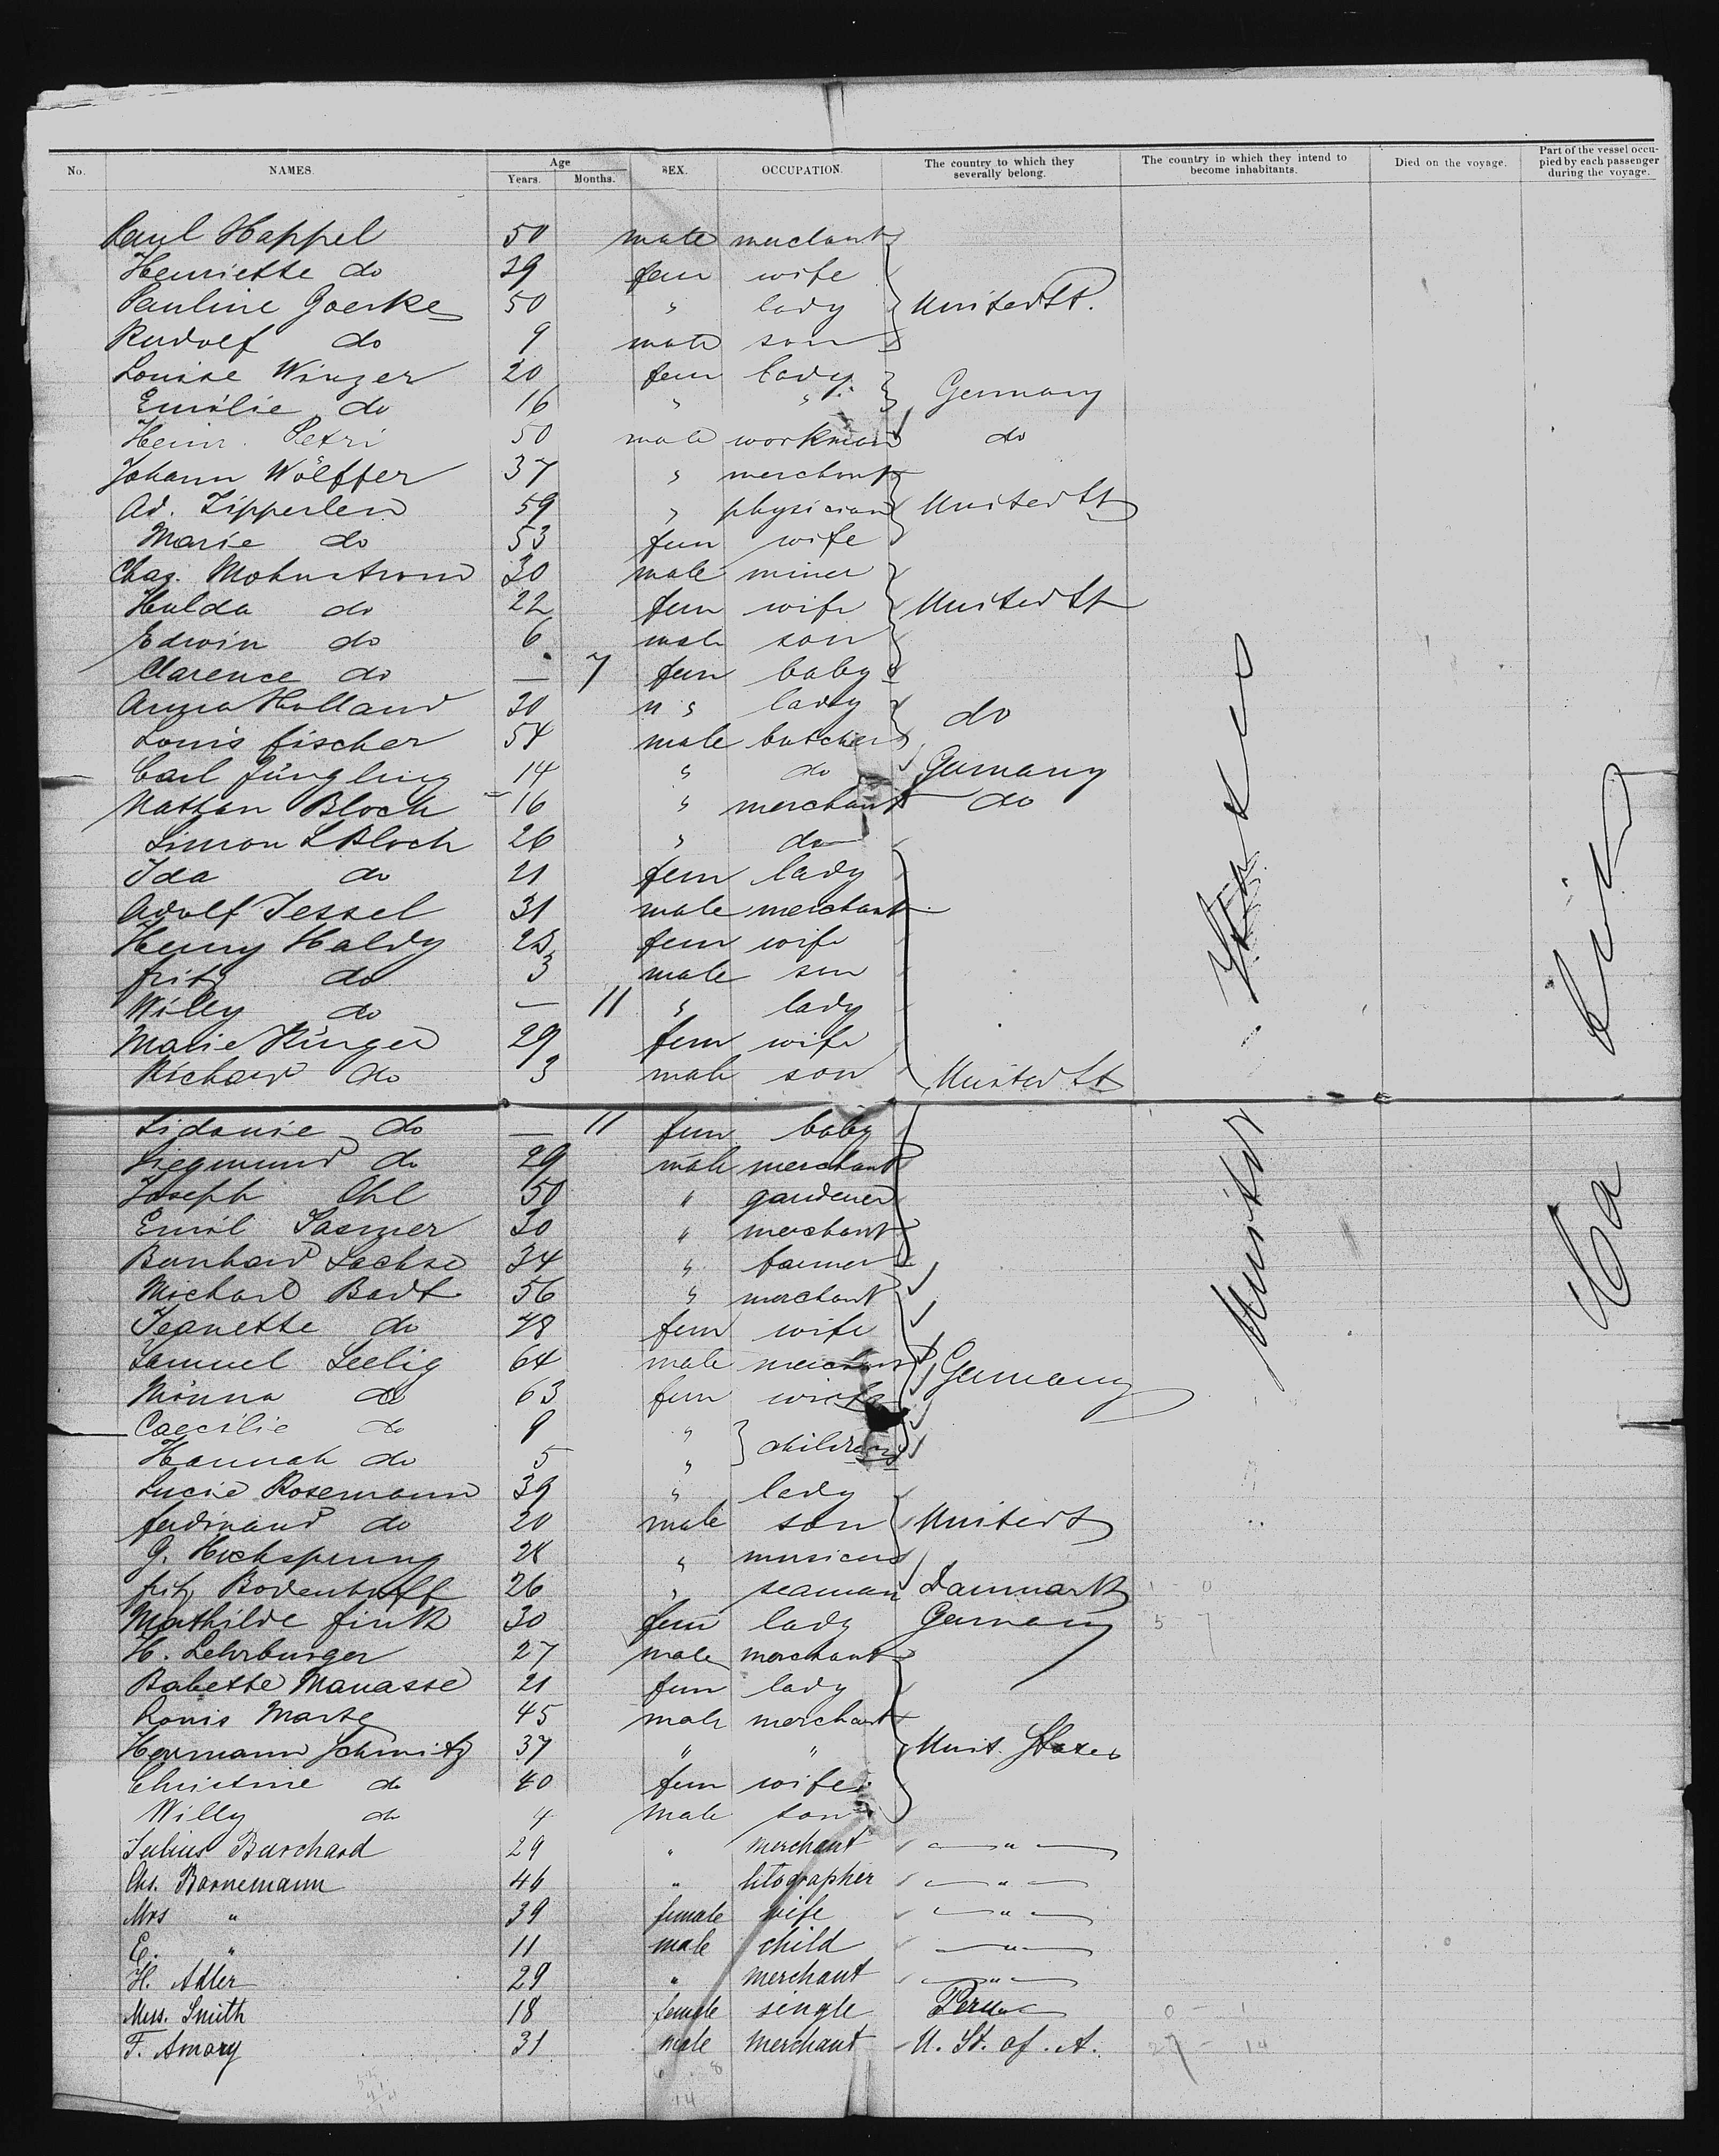 No. NAMES. Age Years. Months. SEX. OCCUPATION. The country to which they severally belong. The country in which they intend to become inhabitants. Died on the voyage. Part of the vessel occupied by each passenger during the voyage.
Paul Happel 50 male merchant
Henriette do 39 fem wife
Pauline Goerke 50 " lady United St.
Rudolf do 9 male son
Louise Winzer 20 fem lady
Emilie do 16 " " Germany
Heinr. Petri 50 male workman do
Johann Wölffer 37 " merchant
Ad. Zipperlen 59 " physician United St
Marie do 53 fem wife
Chas. Mohnstrom 30 male miner
Hulda do 22 fem wife United St
Edwin do 6 male son
Clarence do — 7 fem baby
Anna Holland 20 " lady do
Louis Fischer 54 male butcher
Carl Jüngling 14 " do Germany
Nathan Bloch 16 " merchant do
Simon L Bloch 26 " do
Ida do 21 fem lady
Adolf Tessel 31 male merchant
Henny Haldy 25 fem wife
Fritz do 3 male son
Willy do — 11 " lady
Marie Rürger 29 fem wife
Richard do 3 male son United St
Sidonie do — 11 fem baby
Siegmund do 29 male merchant
Joseph Ohl 50 " gardener
Emil Sasmer 30 " merchant
Bernhard Sachse 34 " farmer
Michael Badt 56 " merchant
Jeanette do 48 fem wife
Samuel Seelig 64 male merchant Germany
Minna do 63 fem wife
Caecilie do 9 " children
Hannah do 5 "
Lucie Rosemann 39 " lady
Ferdinand do 20 male son United St
G. Hochsprung 28 " musician
Fritz Bodenhoff 26 " seaman Danmark
Mathilde Fink 30 fem lady Germany
H. Lehrburger 27 male merchant
Babette Manasse 21 fem lady
Louis Marte 45 male merchant
Hermann Schmitz 37 " " Unit. States
Christine do 40 fem wife
Willy do 4 male son
Julius Burchard 29 " merchant — " —
Chs. Bornemann 46 " litographer — " —
Mrs " 39 female wife — " —
E. " 11 male child — " —
H. Adler 29 " merchant — " —
Miss. Smith 18 female single Peru
F. Amory 31 male Merchant U. St. of. A.
United States
Cabin